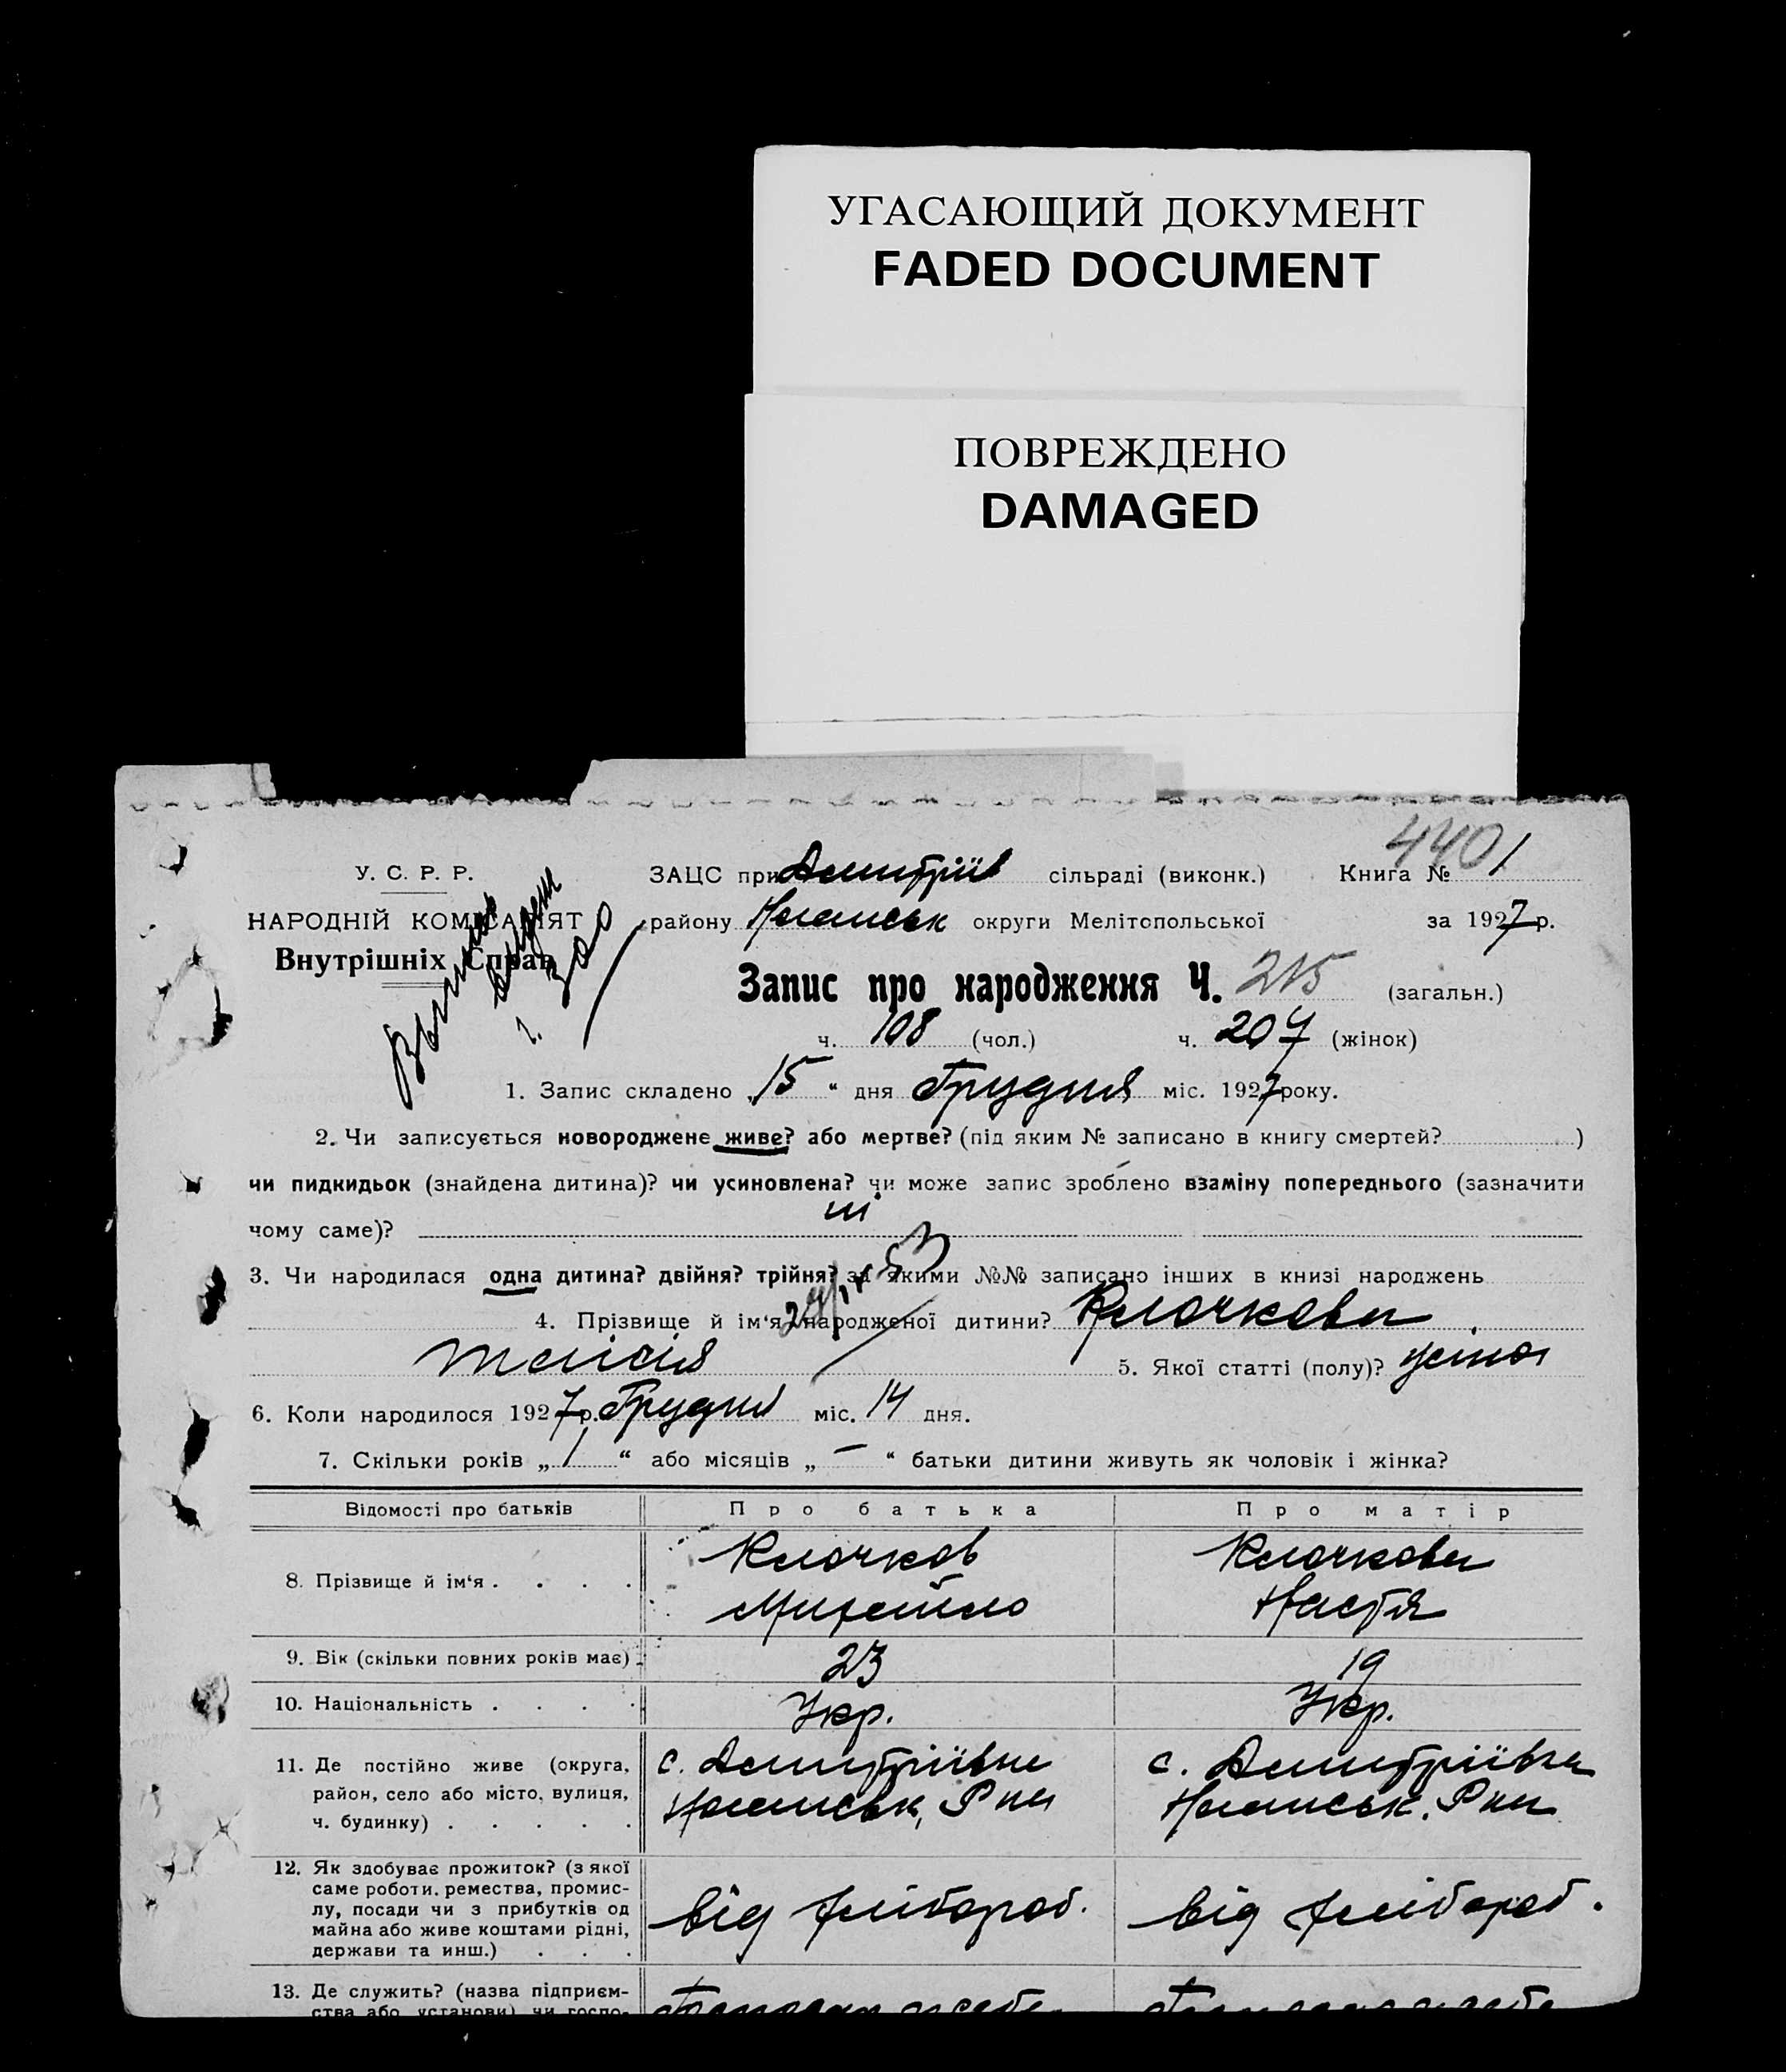 УГАСАЮЩИЙ ДОКУМЕНТ
FADED DOCUMENT
ПОВРЕЖДЕНО
DAMAGED
4401
У. С. Р. Р.
НАРОДНІЙ КОМІСАРІЯТ
Внутрішніх Справ
ЗАЦС при Дмитріїв сільраді (виконк.) Книга №
району Ногайськ округи Мелітопольської за 1927 р.
Запис про народження Ч. 215 (загальн.)
ч. 108 (чол.) ч. 207 (жінок)
1. Запис складено „15“ дня Грудня міс. 1927 року.
2. Чи записується новороджене живе? або мертве? (під яким № записано в книгу смертей? )
чи пидкидьок (знайдена дитина)? чи усиновлена? чи може запис зроблено взаміну попереднього (зазначити
чому саме)? ні
3. Чи народилася одна дитина? двійня? трійня? за якими №№ записано інших в книзі народжень
4. Прізвище й ім‘я народженої дитини? Клочкова
Таисія 5. Якої статті (полу)?
6. Коли народилося 1927 р. Грудня міс. 14 дня.
7. Скільки років „1“ або місяців „—“ батьки дитини живуть як чоловік і жінка?
Відомості про батьків Про батька Про матір
8. Прізвище й ім‘я . . . . Клочков Клочкова
Михайло Настя
9. Вік (скільки повних років має) 23 19
10. Національність . . . . Укр. Укр.
11. Де постійно живе (округа, район, село або місто, вулиця, ч. будинку) . . . . . с. Дмитріївка с. Дмитріївка
Ногайськ. Рна Ногайськ. Рна
12. Як здобуває прожиток? (з якої
саме роботи, ремества, промис-
лу, посади чи з прибутків од
майна або живе коштами рідні,
держави та инш.) . . . від хлібороб. від хлібороб.
13. Де служить? (назва підприєм-
ства або установи) чи госпо-